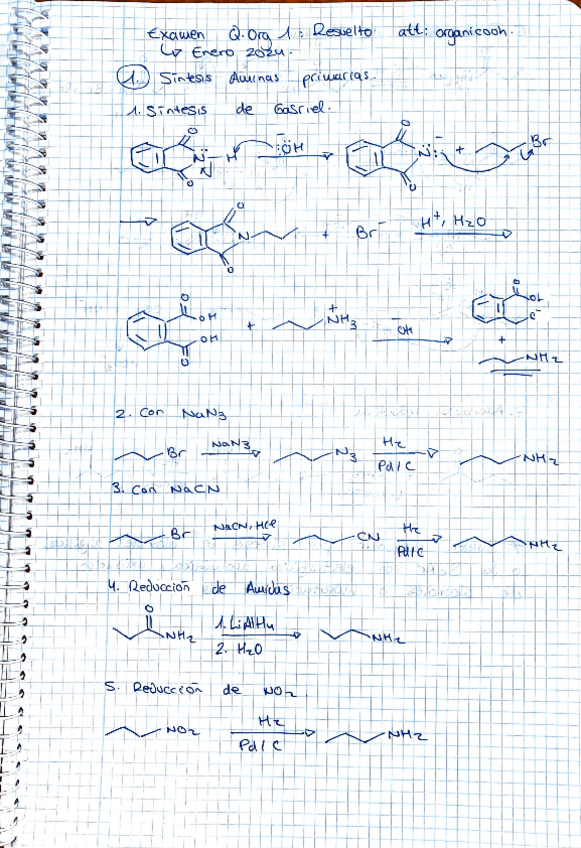 Examen Q.Org 1: Resuelto att: organicooh.
↳ Enero 2024.
1. Síntesis Aminas primarias.
1. Síntesis de Gabriel.
O N H :ÖH O N: + Br
O O
O N + Br⁻ H⁺, H₂O
O
O OH + NH₃⁺ ⁻OH O
OH
O + NH₂
2. Con NaN₃
Br NaN₃ N₃ H₂ Pd/C NH₂
3. Con NaCN
Br NaCN, HCl CN H₂ Pd/C NH₂
4. Reducción de Amidas
O NH₂ 1. LiAlH₄ NH₂
2. H₂O
5. Reducción de NO₂.
NO₂ H₂ Pd/C NH₂